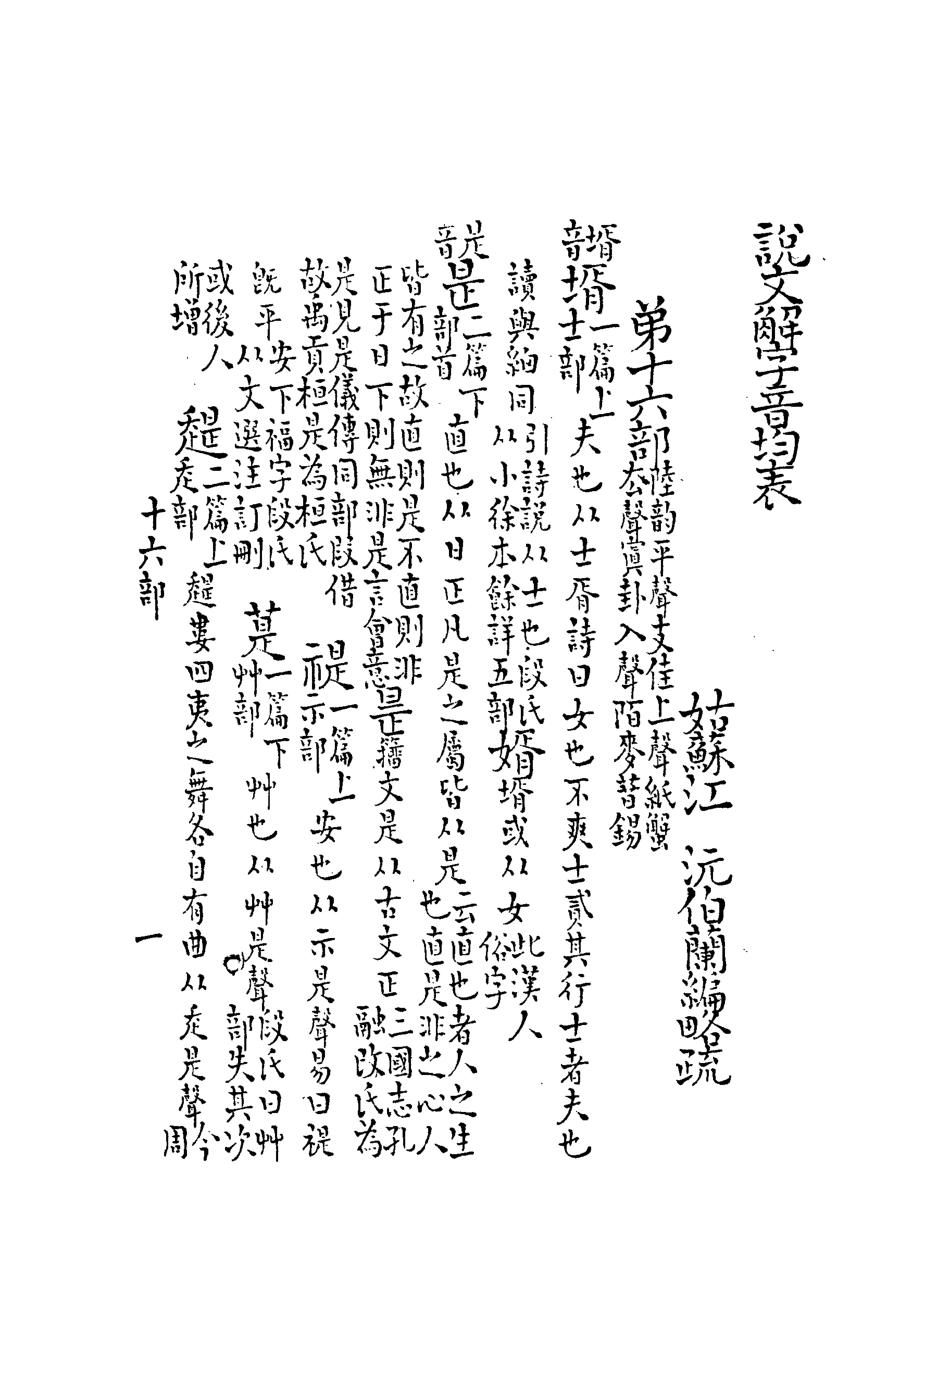 說文解字音均表
姑蘇江　沅伯蘭編略疏
第十六部陸韵平聲支佳上聲紙蟹
厺聲寘卦入聲陌麥昔錫
壻音
壻一篇上
士部
夫也从士胥詩曰女也不爽士貳其行士者夫也
讀與細同
引詩說从士也段氏
从小徐本餘詳五部
婿壻或从女
此漢人
俗字
是音
是二篇下
部首
直也从日正凡是之屬皆从是
云直也者人之生
也直是非之心人
皆有之故直則是不直則非
正于日下則無非是言會意
昰籒文是从古文正
三國志孔
融改氏為
是見是儀傳同部叚借
故禹貢桓是為桓氏
禔一篇上
示部
安也从示是聲易曰禔
旣平
安下福字段氏
从文選注訂刪
萛一篇下
艸部
艸也从艸是聲
段氏曰艸
部失其次
或後人
所增
趧二篇上
走部
趧婁四夷之舞各自有曲从走是聲
今
周
十六部　一